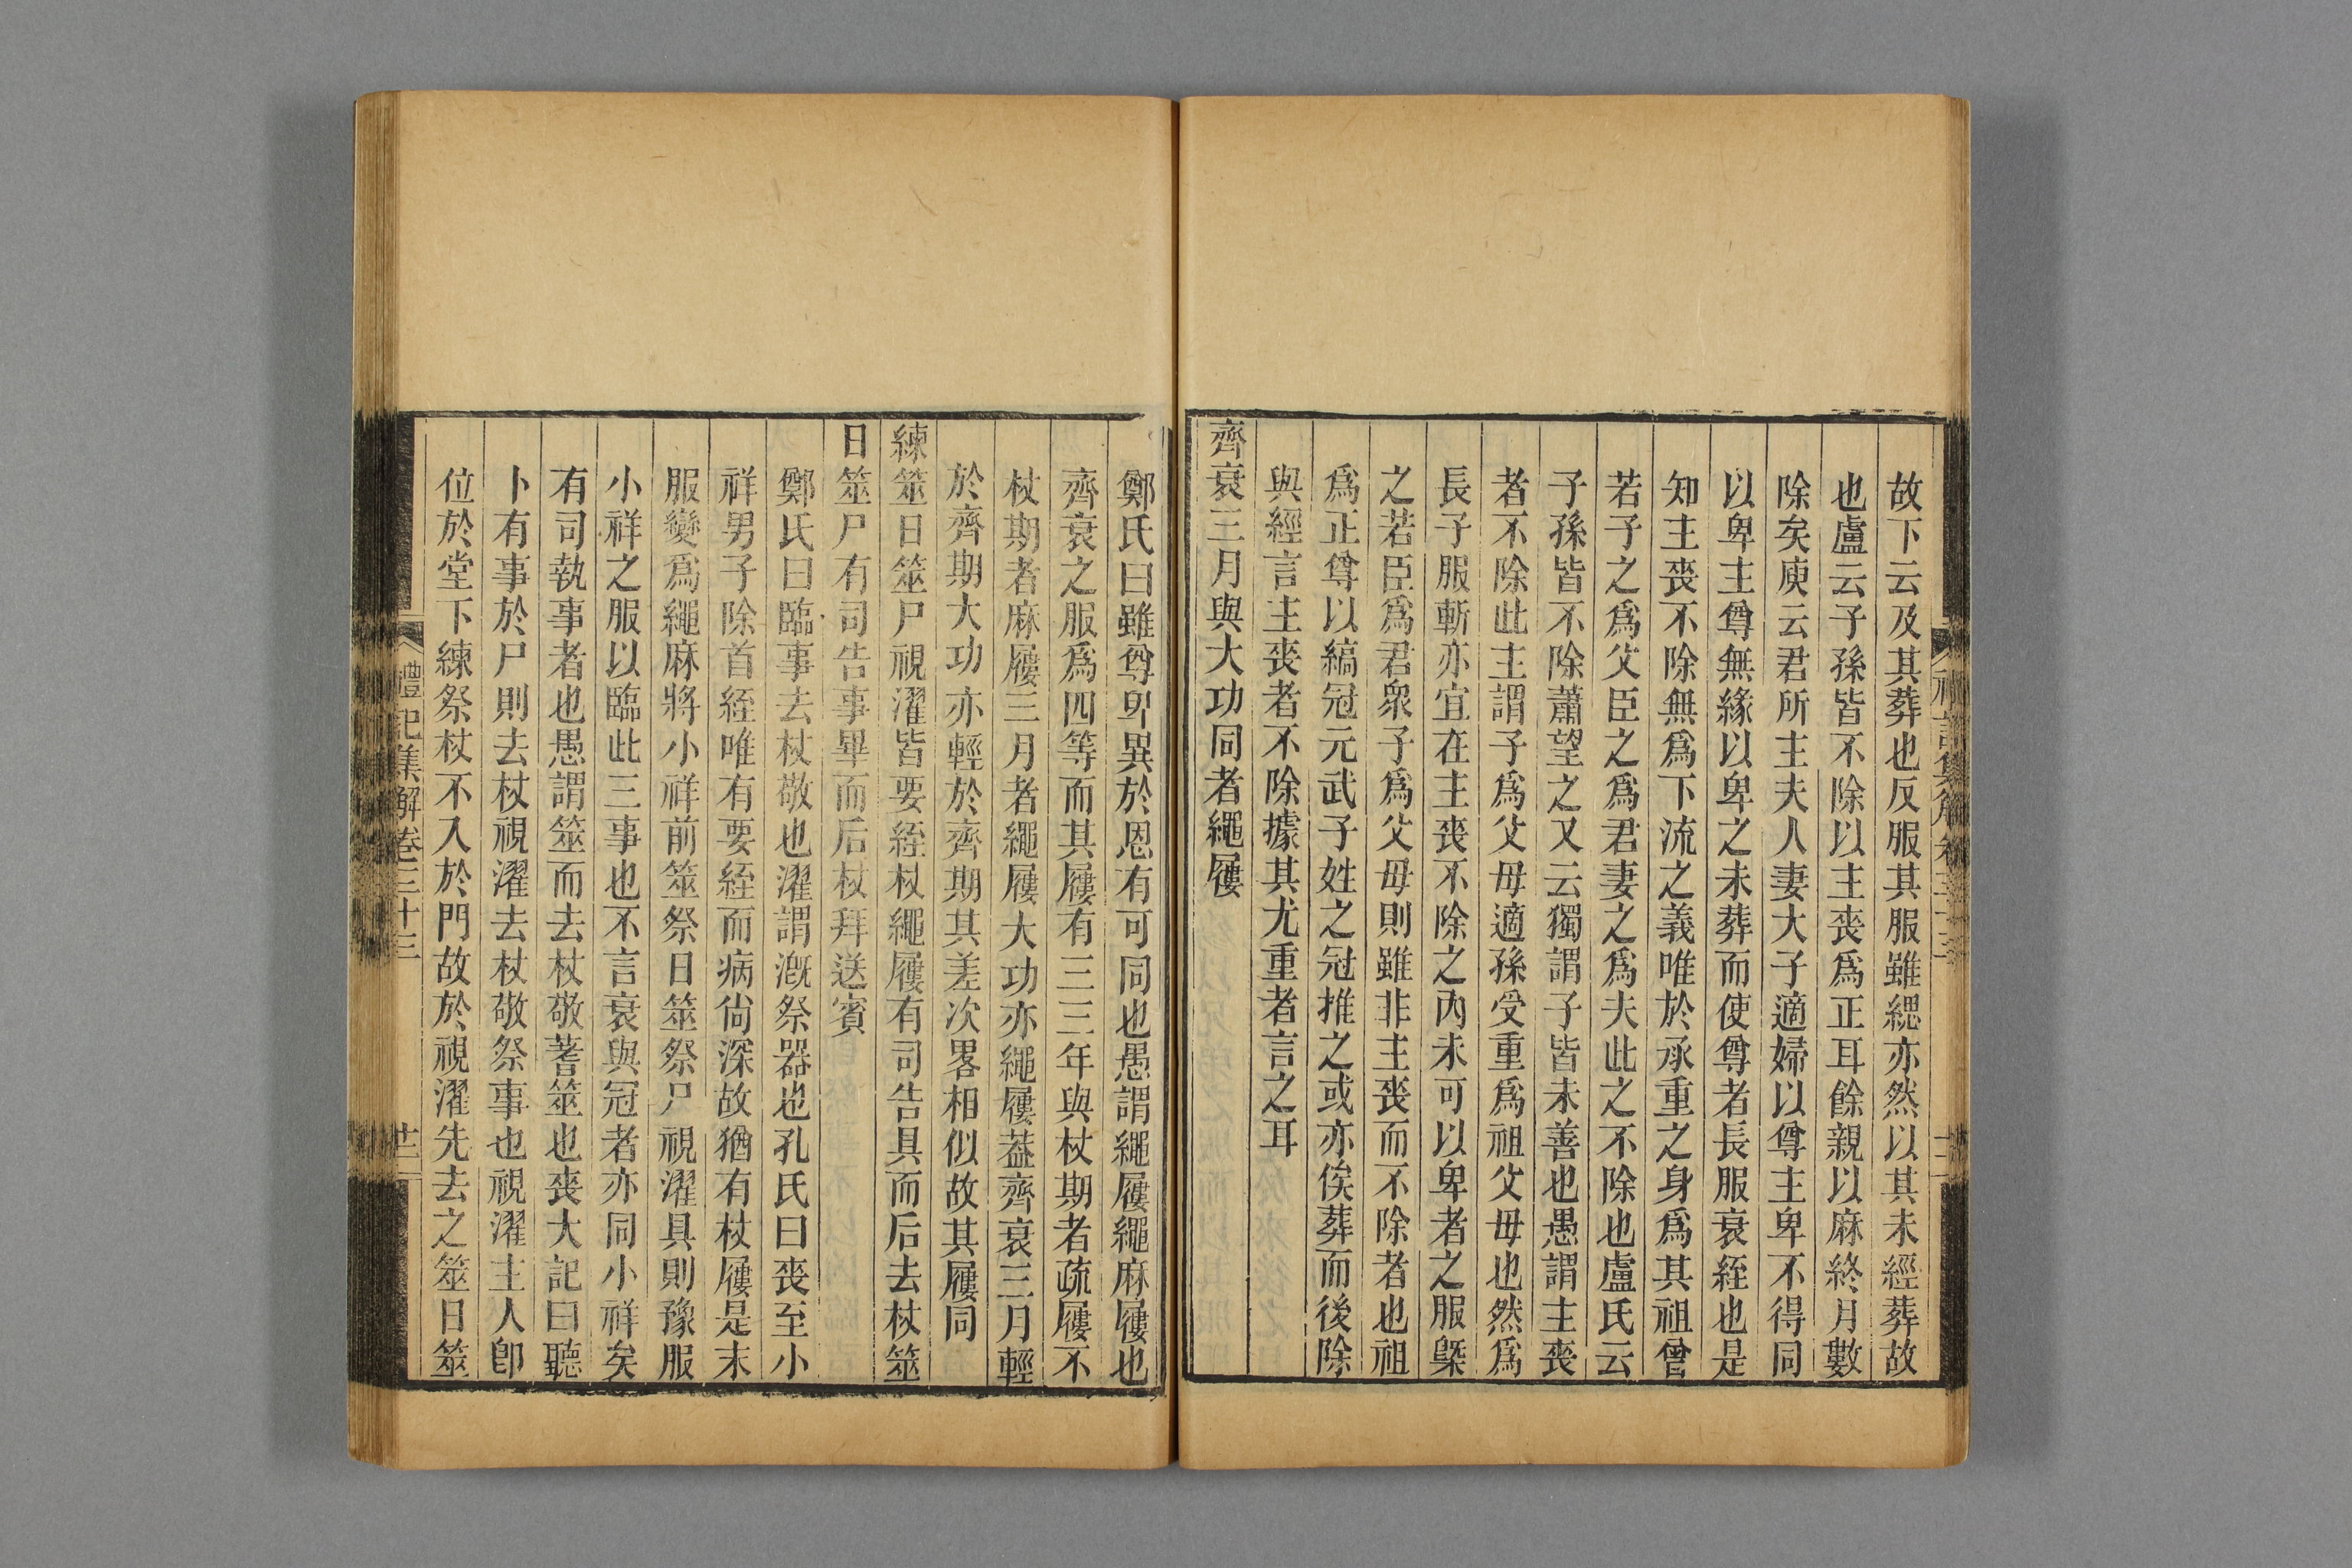 故下云及其葬也反服其服雖緦亦然以其未經葬故
也盧云子孫皆不除以主喪爲正耳餘親以麻終月數
除矣庾云君所主夫人妻大子適婦以尊主卑不得同
以卑主尊無緣以卑之未葬而使尊者長服衰絰也是
知主喪不除無爲下流之義唯於承重之身爲其祖曾
若子之爲父臣之爲君妻之爲夫此之不除也盧氏云
子孫皆不除蕭望之又云獨謂子皆未善也愚謂主喪
者不除此主謂子爲父母適孫受重爲祖父母也然爲
長子服斬亦宜在主喪不除之內未可以卑者之服槩
之若臣爲君衆子爲父母則雖非主喪而不除者也祖
爲正尊以縞冠元武子姓之冠推之或亦俟葬而後除
與經言主喪者不除據其尤重者言之耳
齊衰三月與大功同者繩屨
鄭氏曰雖尊卑異於恩有可同也愚謂繩屨繩麻屨也
齊衰之服爲四等而其屨有三三年與杖期者疏屨不
杖期者麻屨三月者繩屨大功亦繩屨葢齊衰三月輕
於齊期大功亦輕於齊期其差次畧相似故其屨同
練筮日筮尸視濯皆要絰杖繩屨有司告具而后去杖筮
日筮尸有司告事畢而后杖拜送賓
鄭氏曰臨事去杖敬也濯謂漑祭器也孔氏曰喪至小
祥男子除首絰唯有要絰而病尙深故猶有杖屨是末
服變爲繩麻將小祥前筮祭日筮祭尸視濯具則豫服
小祥之服以臨此三事也不言衰與冠者亦同小祥矣
有司執事者也愚謂筮而去杖敬蓍筮也喪大記曰聽
卜有事於尸則去杖視濯去杖敬祭事也視濯主人卽
位於堂下練祭杖不入於門故於視濯先去之筮日筮
禮記集解卷三十三